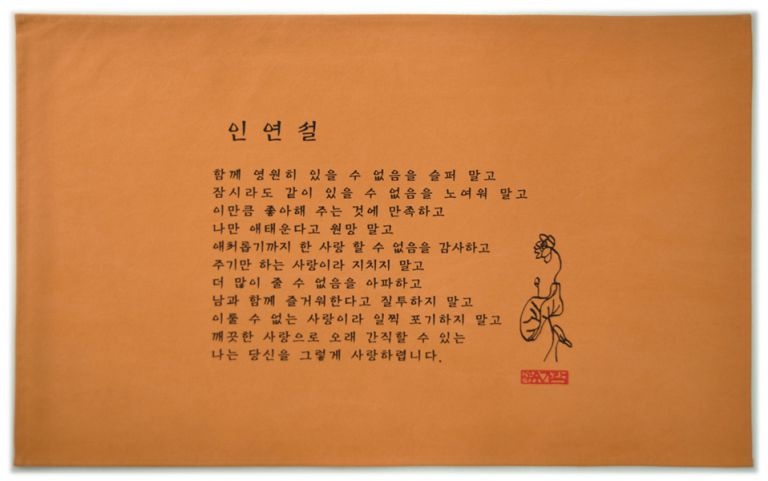 인연설
함께 영원히 있을 수 없음을 슬퍼 말고
잠시라도 같이 있을 수 없음을 노여워 말고
이만큼 좋아해 주는 것에 만족하고
나만 애태운다고 원망 말고
애처롭기까지 한 사랑 할 수 없음을 감사하고
주기만 하는 사랑이라 지치지 말고
더 많이 줄 수 없음을 아파하고
남과 함께 즐거워한다고 질투하지 말고
이룰 수 없는 사랑이라 일찍 포기하지 말고
깨끗한 사랑으로 오래 간직할 수 있는
나는 당신을 그렇게 사랑하렵니다.